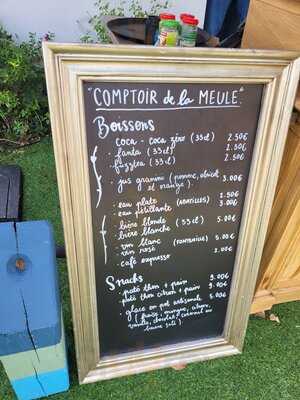 "COMPTOIR de la MEULE"
Boissons
coca - coca zéro (33cl) 2.50€
- fanta (33cl) 2.50€
- fuzztea (33cl) 2.50€
- jus granini (pomme, abricot
et orange).
eau plate 1.50€
- eau pétillante (ABATILLES) 3.00€
- bière blonde (33cl) 5.00€
- bière blanche
- vin blanc 5.00€
- vin rosé
- café expresso 2.00€
Snacks
- paté thon + pain 9.00€
- paté thon citron + pain 9.00€
- glace en pot artisanale 5.00€
(fraise, mangue,
vanille, chocolat, caramel au
beurre salé)